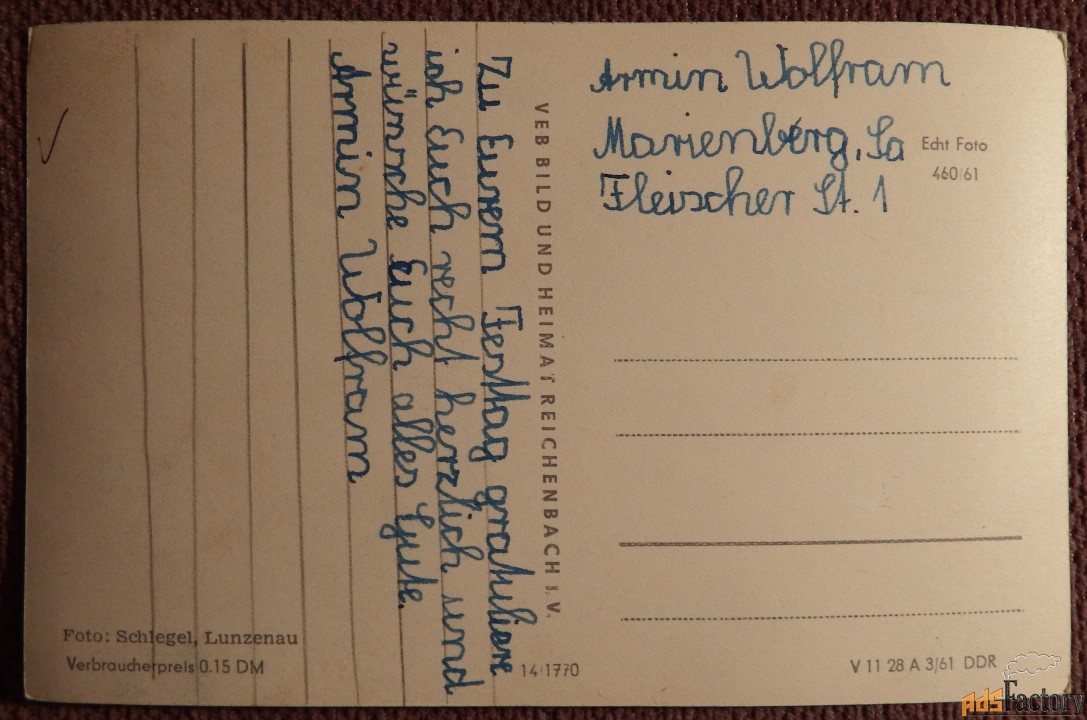 Zu Eurem Festtag gratuliere
ich Euch recht herzlich und
wünsche Euch alles Gute.
Armin Wolfram
VEB BILD UND HEIMAT REICHENBACH I. V.
Armin Wolfram
Marienberg, Sa
Fleischer St. 1
Echt Foto
460/61
Foto: Schlegel, Lunzenau
Verbraucherpreis 0.15 DM
14/1770
V 11 28 A 3/61 DDR
AdsFactory